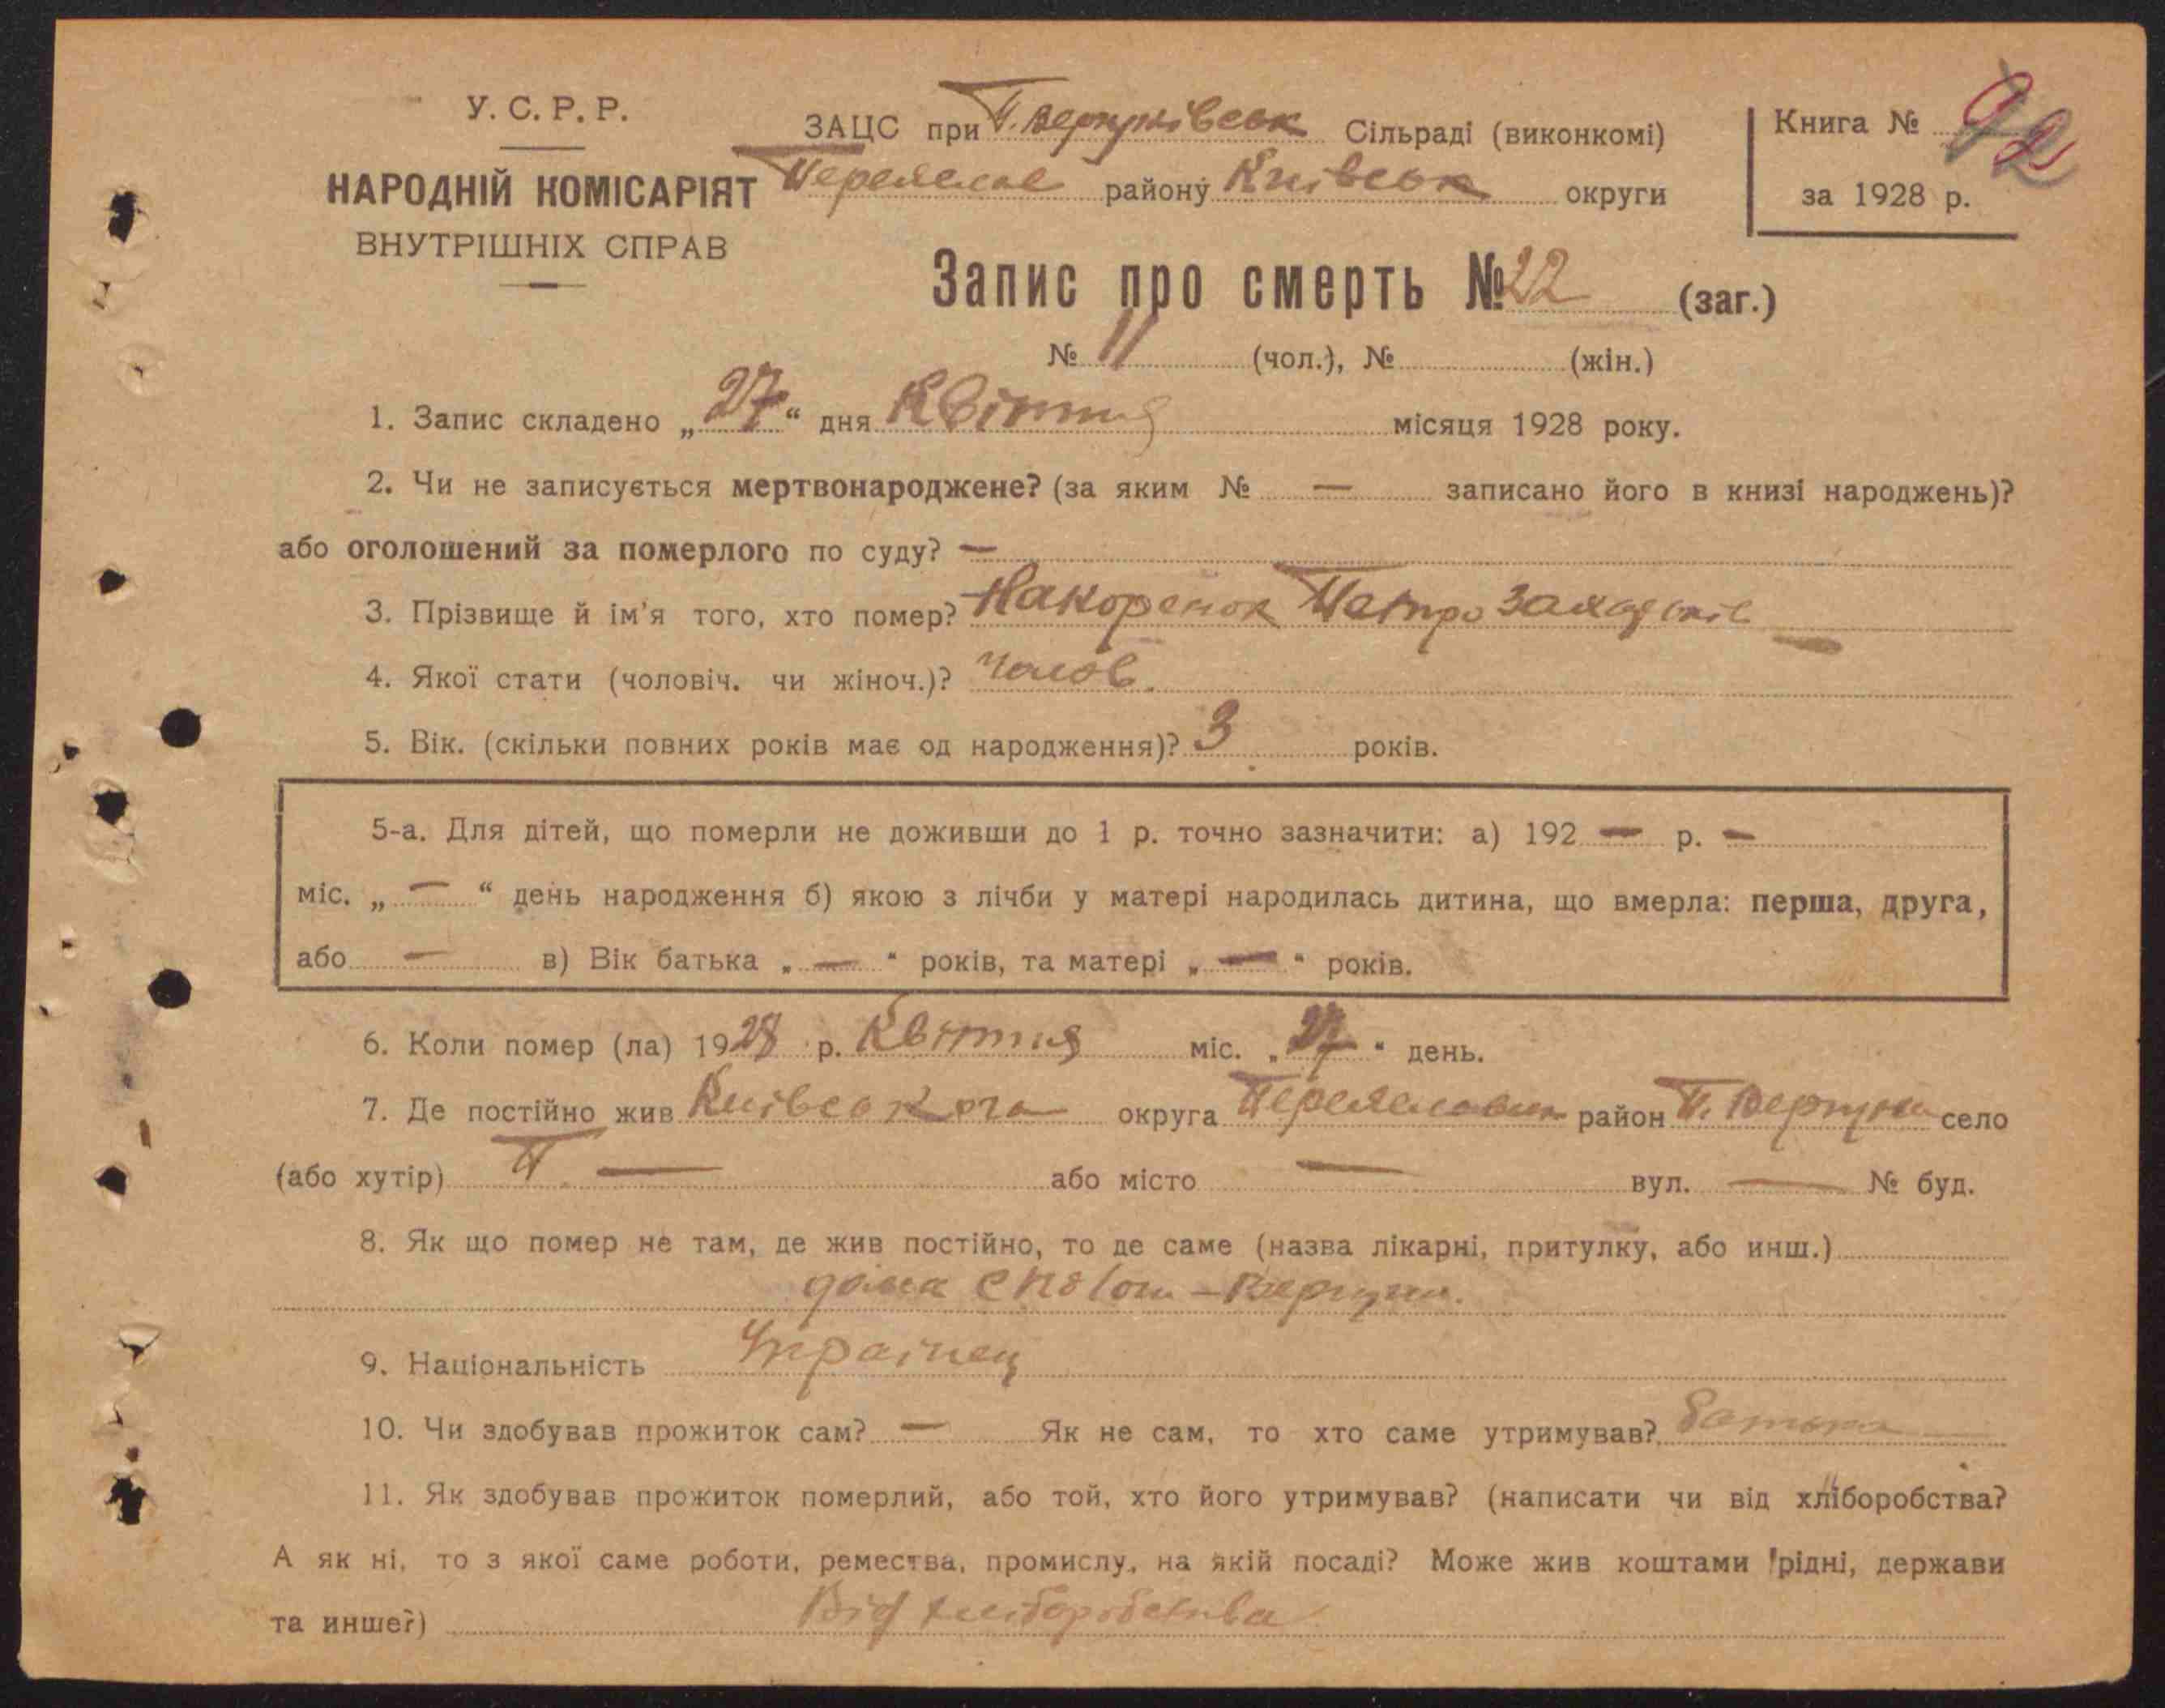 У. С. Р. Р.
НАРОДНІЙ КОМІСАРІЯТ
ВНУТРІШНІХ СПРАВ
ЗАЦС при Сільраді (виконкомі)
Переяслав району Київськ округи
Книга № 92
за 1928 р.
Запис про смерть № 22 (заг.)
№ 11 (чол.), № (жін.)
1. Запис складено „27“ дня Квітня місяця 1928 року.
2. Чи не записується мертвонароджене? (за яким № — записано його в книзі народжень)?
або оголошений за померлого по суду? —
3. Прізвище й ім'я того, хто помер? Петро
4. Якої стати (чоловіч. чи жіноч.)? чолов.
5. Вік. (скільки повних років має од народження)? 3 років.
5-а. Для дітей, що померли не доживши до 1 р. точно зазначити: а) 192 — р. —
міс. „ — “ день народження б) якою з лічби у матері народилась дитина, що вмерла: перша, друга,
або — в) Вік батька „ — “ років, та матері „ — “ років.
6. Коли помер (ла) 1928 р. Квітня міс. „27“ день.
7. Де постійно жив округа район село
(або хутір) П. — або місто — вул. — № буд.
8. Як що помер не там, де жив постійно, то де саме (назва лікарні, притулку, або инш.)
дома
9. Національність Українец
10. Чи здобував прожиток сам? — Як не сам, то хто саме утримував?
11. Як здобував прожиток померлий, або той, хто його утримував? (написати чи від хліборобства?
А як ні, то з якої саме роботи, ремества, промислу, на якій посаді? Може жив коштами рідні, держави
та инше?) Від хліборобства